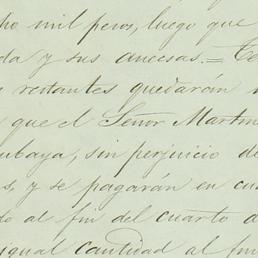 ho mil pesos, luego que
da y sus anecsas. = Ce
restantes quedarán
que el Señor Martin
ubaya, sin perjuicio de
s, y se pagarán en cu
do al fin del cuarto a
igual cantidad al fin